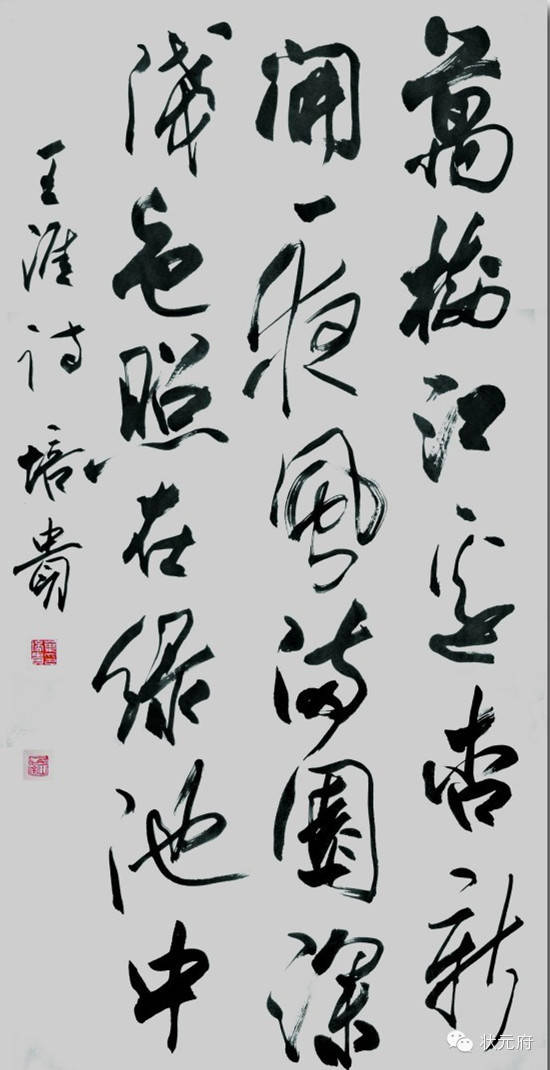 萬樹江邊杏新
開一夜風滿園深
淺色照在綠池中
王涯詩 培貴
状元府